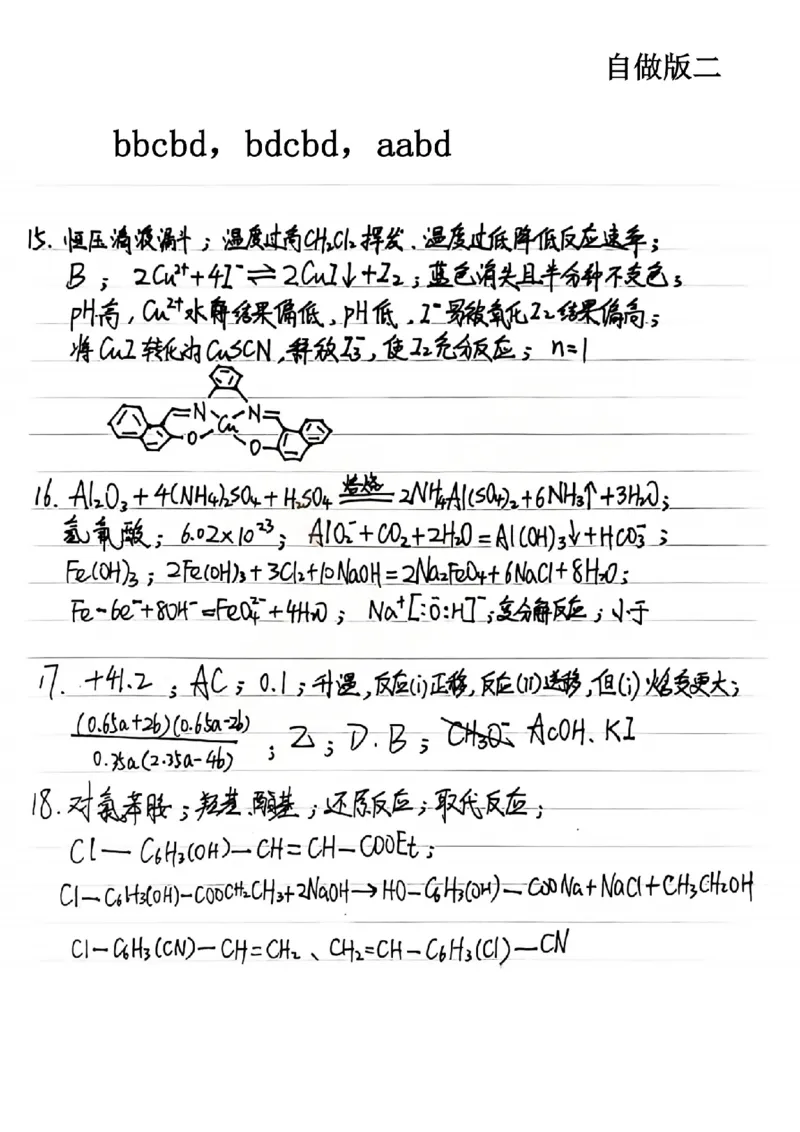 自做版二
bbcbd，bdcbd，aabd
15. 恒压滴液漏斗；温度过高CH₂Cl₂挥发、温度过低降低反应速率；
B；2Cu²⁺+4I⁻⇌2CuI↓+I₂；蓝色消失且半分钟不变色；
pH高，Cu²⁺水解结果偏低，pH低，I⁻易被氧化I₂结果偏高；
将CuI转化为CuSCN，释放I₃⁻，使I₂充分反应；n=1
N Cu N
O O
16. Al₂O₃+4(NH₄)₂SO₄+H₂SO₄ 焙烧 2NH₄Al(SO₄)₂+6NH₃↑+3H₂O；
氢氧酸；6.02×10²³；AlO₂⁻+CO₂+2H₂O=Al(OH)₃↓+HCO₃⁻；
Fe(OH)₃；2Fe(OH)₃+3Cl₂+10NaOH=2Na₂FeO₄+6NaCl+8H₂O；
Fe-6e⁻+8OH⁻=FeO₄²⁻+4H₂O；Na⁺[:Ö:H]⁻；复分解反应；小于
17. +41.2；AC；0.1；升温，反应(i)正移，反应(ii)逆移，但(i)焓变更大；
(0.65a+2b)(0.65a-2b)
0.35a(2.35a-4b)
；Z；D、B；CH₃O⁻、AcOH、KI
18. 对氯苯胺；羟基、酯基；还原反应；取代反应；
Cl—C₆H₃(OH)—CH=CH—COOEt；
Cl—C₆H₃(OH)—COOCH₂CH₃+2NaOH→HO—C₆H₃(OH)—COONa+NaCl+CH₃CH₂OH
Cl—C₆H₃(CN)—CH=CH₂、CH₂=CH—C₆H₃(Cl)—CN